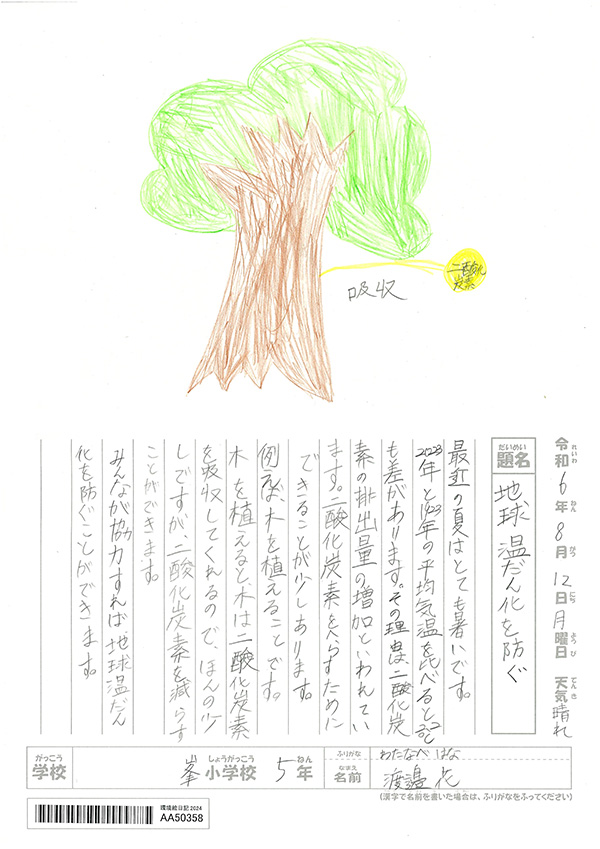 二酸化
炭素
吸収
令和6年8月12日月曜日 天気晴れ
れいわ ねん がつ にち ようび てんき
だいめい
題名
地球温だん化を防ぐ
最近の夏はとても暑いです。
2023年と1923年の平均気温を比べると
も差があります。その理由は、二酸化炭
素の排出量の増加といわれてい
ます。二酸化炭素をへらすために
できることが少しあります。
例えば、木を植えることです。
木を植えると、木は二酸化炭素
を吸収してくれるので、ほんの少
しですが、二酸化炭素を減らす
ことができます。
みんなが協力すれば地球温だん
化を防ぐことができます。
がっこう
学校
峯小学校 5年
しょうがっこう ねん
ふりがな
わたなべ はな
なまえ
名前
渡邉 花
(漢字で名前を書いた場合は、ふりがなをふってください)
環境絵日記2024
AA50358